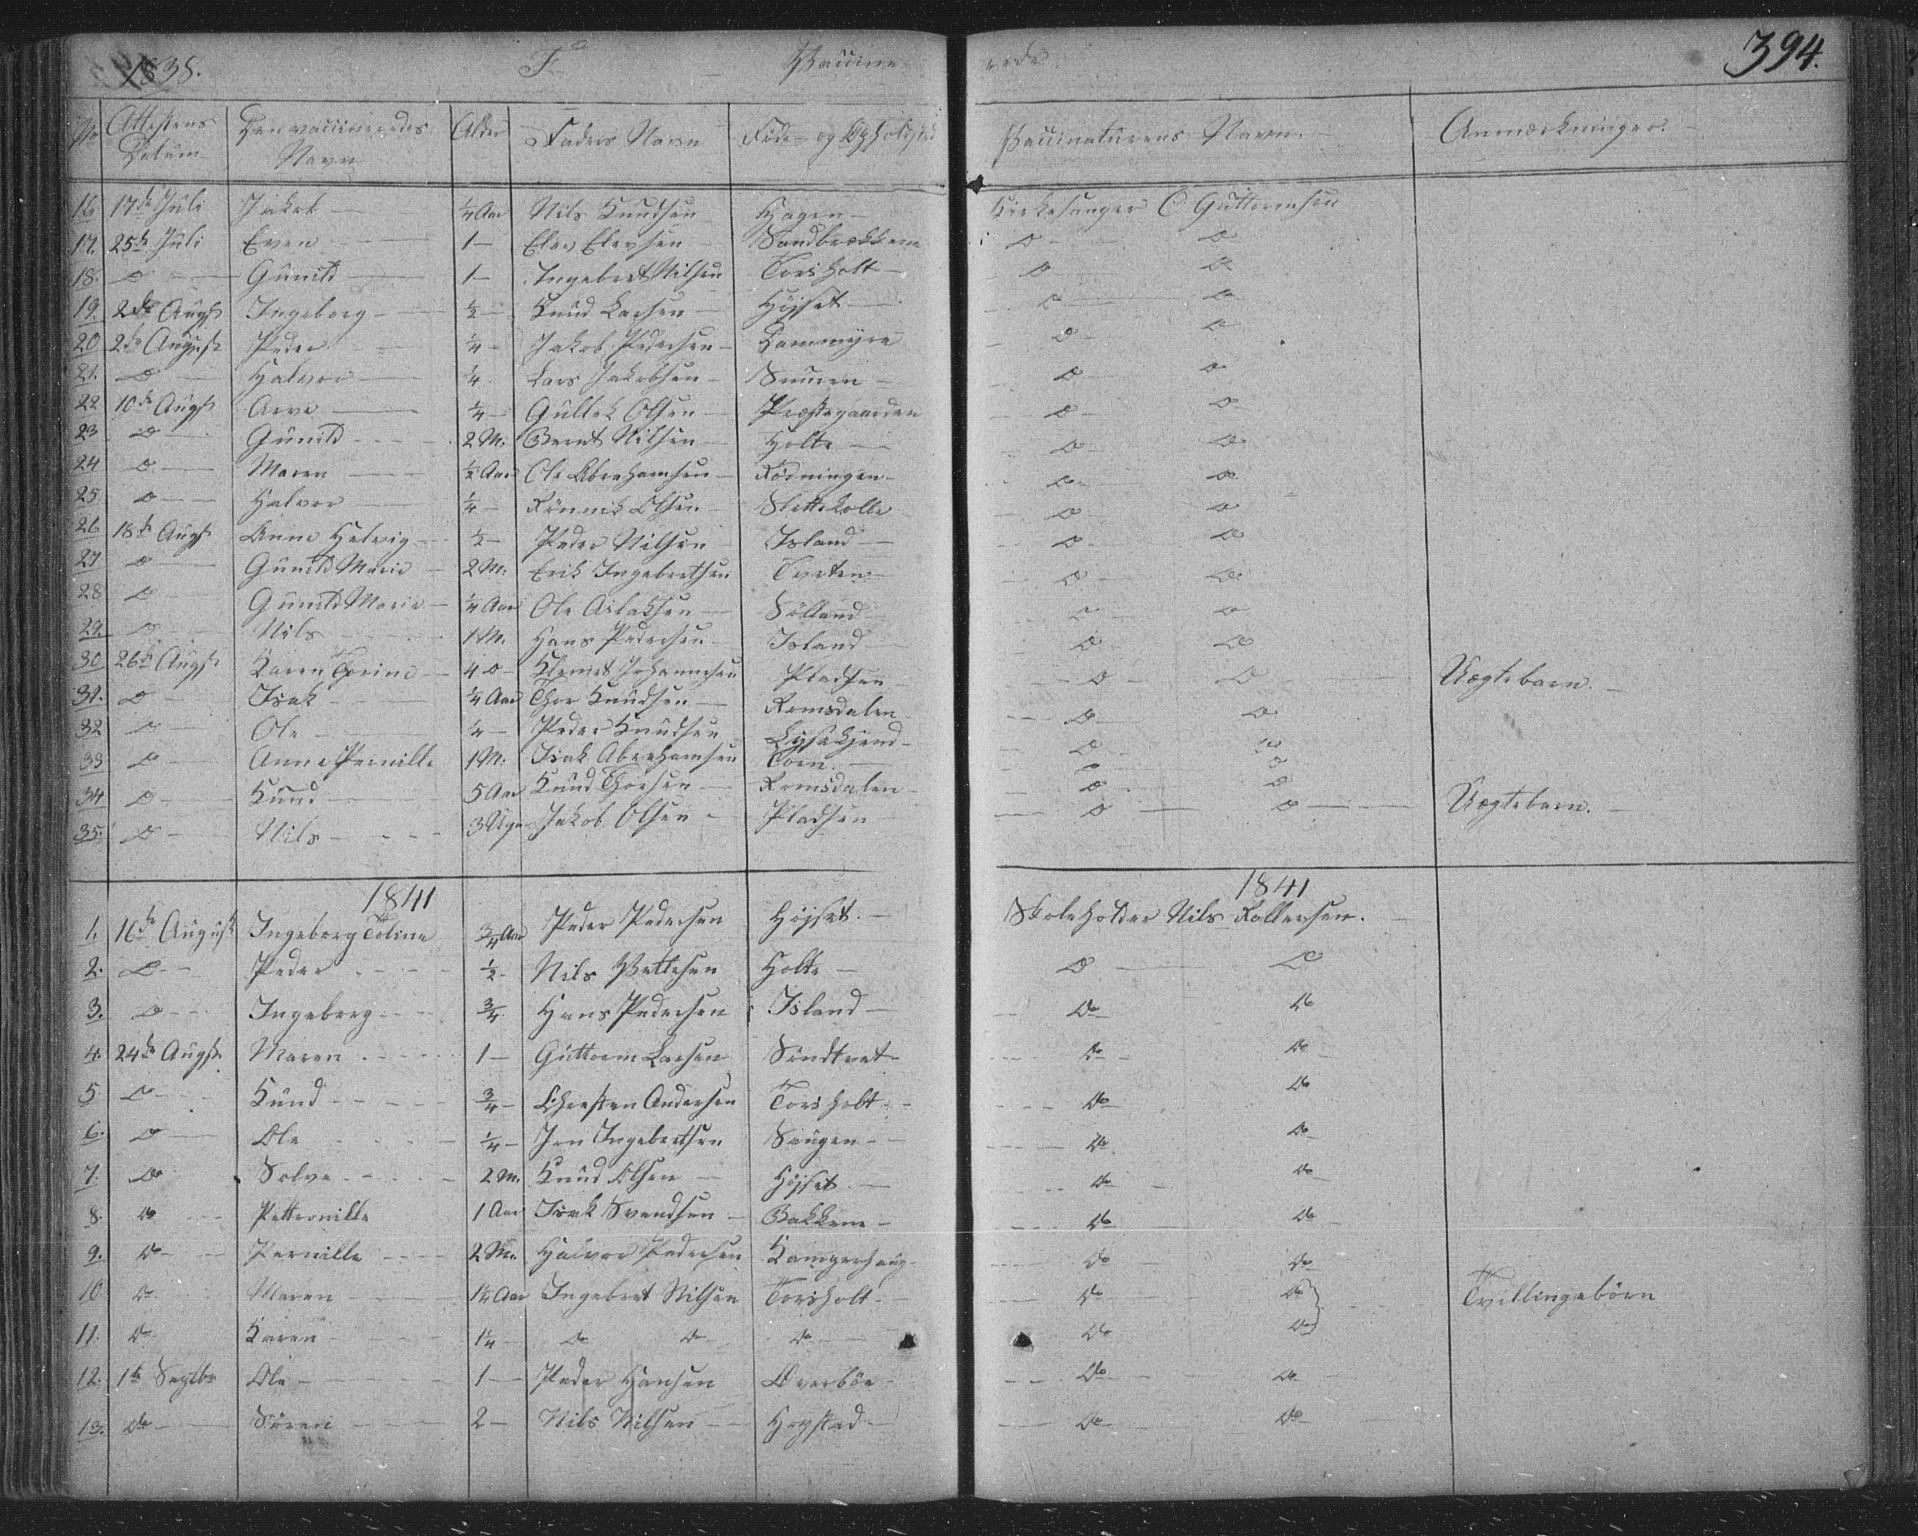 1838. F Vaccine- rede 394.
No Attestens Datum Den vaccineredes Navn Alder Faders Navn Føde- og Opholdsted Vaccinateurens Navn. Anmærkninger.
16 17de Juli Jakob ¼ Aar Nils Knudsen Hagen Kirkesanger O Guttormsen
17. 25de Juli Even 1 Elev Elevsen Sandbrækkene do do
18. do Gunild 1 Ingebret Nilsen Torsholt do do
19. 2de Augst Ingeborg ½ Knud Larsen Højset do do
20 2de August Peder ¼ Jakob Pedersen Dammyra do do
21. do Halvor ¼ Lars Jakobsen do do
22 10de Augst Arve ¼ Gullek Olsen Præstegaarden do do
23 do Gunild 2 M: Bernt Nilsen Holte do do
24 do Maren ½ Aar Ole Abrahamsen Rødningen do do
25 do Halvor ¼ Olsen Slettekolle do do
26 18de Augst Anne Helvig ½ Peder Nilsen Island do do
27 do Gunild Marie 2 M: Erik Ingebretsen Tveten do do
28 do Gunild Marie ¼ Aar Ole Aslaksen Sølland do do
29. do Nils 1 M. Hans Pedersen Island do do
30 26de Augst Karen Trine 4 do Klemet Johannesen Pladsen do do Uægtebarn.
31. do Isak ¼ Aar Thor Knudsen Romsdalen do do
32 do Ole ¼ Peder Knudsen Lysekjend do do
33 do Anne Pernille 1 M: Isak Abrahamsen Torn. do do
34 do Knud 5 Aar Knud Thorsen Romsdalen do do
35. do Nils 3 Uger Jakob Olsen Pladsen do do Uægtebarn.
1841 1841
1. 16de August Ingeborg Toline ¾ Aar Peder Pedersen Højset. Skoleholder Nils Rollefsen.
2. do Peder ½ Nils Vettesen Holte do do
3. do Ingeborg ¾ Hans Pedersen Island do do
4. 24de Augst Maren 1 Guttorm Larsen Sundtvet do do
5 do Knud ¾ Christen Andersen Torsholt do do
6. do Ole ¼ Jon Ingebretsen Skugen do do
7. do Solve 2 M. Knud Olsen Højset. do do
8. do Petternille 1 Aar Isak Svendsen Bakkene do do
9. do Pernille 2 M. Halvor Pedersen Kamperhaug do do
10 do Maren 1¼ Aar Ingebret Nilsen Torsholt do do Tvillingebørn
11. do Karen 1¼ do do do do do
12. 1ste Septbr Ole 1 Peder Hansen Overbøe do do
13. do Søren 2 Nils Nilsen Hogstad do do